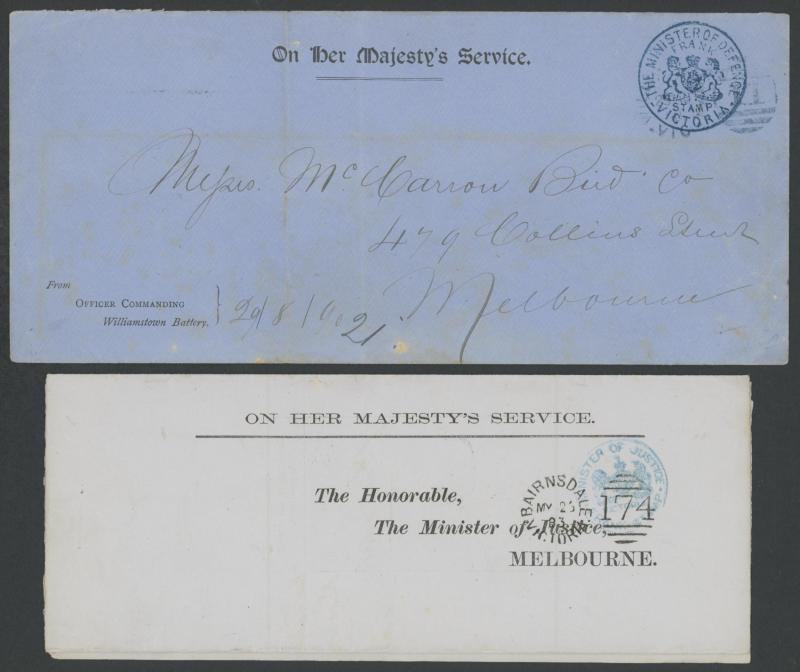 On Her Majesty's Service.
THE MINISTER OF DEFENCE
FRANK
STAMP
VICTORIA
VIC
1
Messrs. McCarron Bird Co
479 Collins Street
Melbourne
From
OFFICER COMMANDING
Williamstown Battery.
29/8/02
21.
ON HER MAJESTY'S SERVICE.
MINISTER OF JUSTICE
The Honorable,
The Minister of Justice,
MELBOURNE.
BAIRNSDALE
MY 25
93
VICTORIA
174